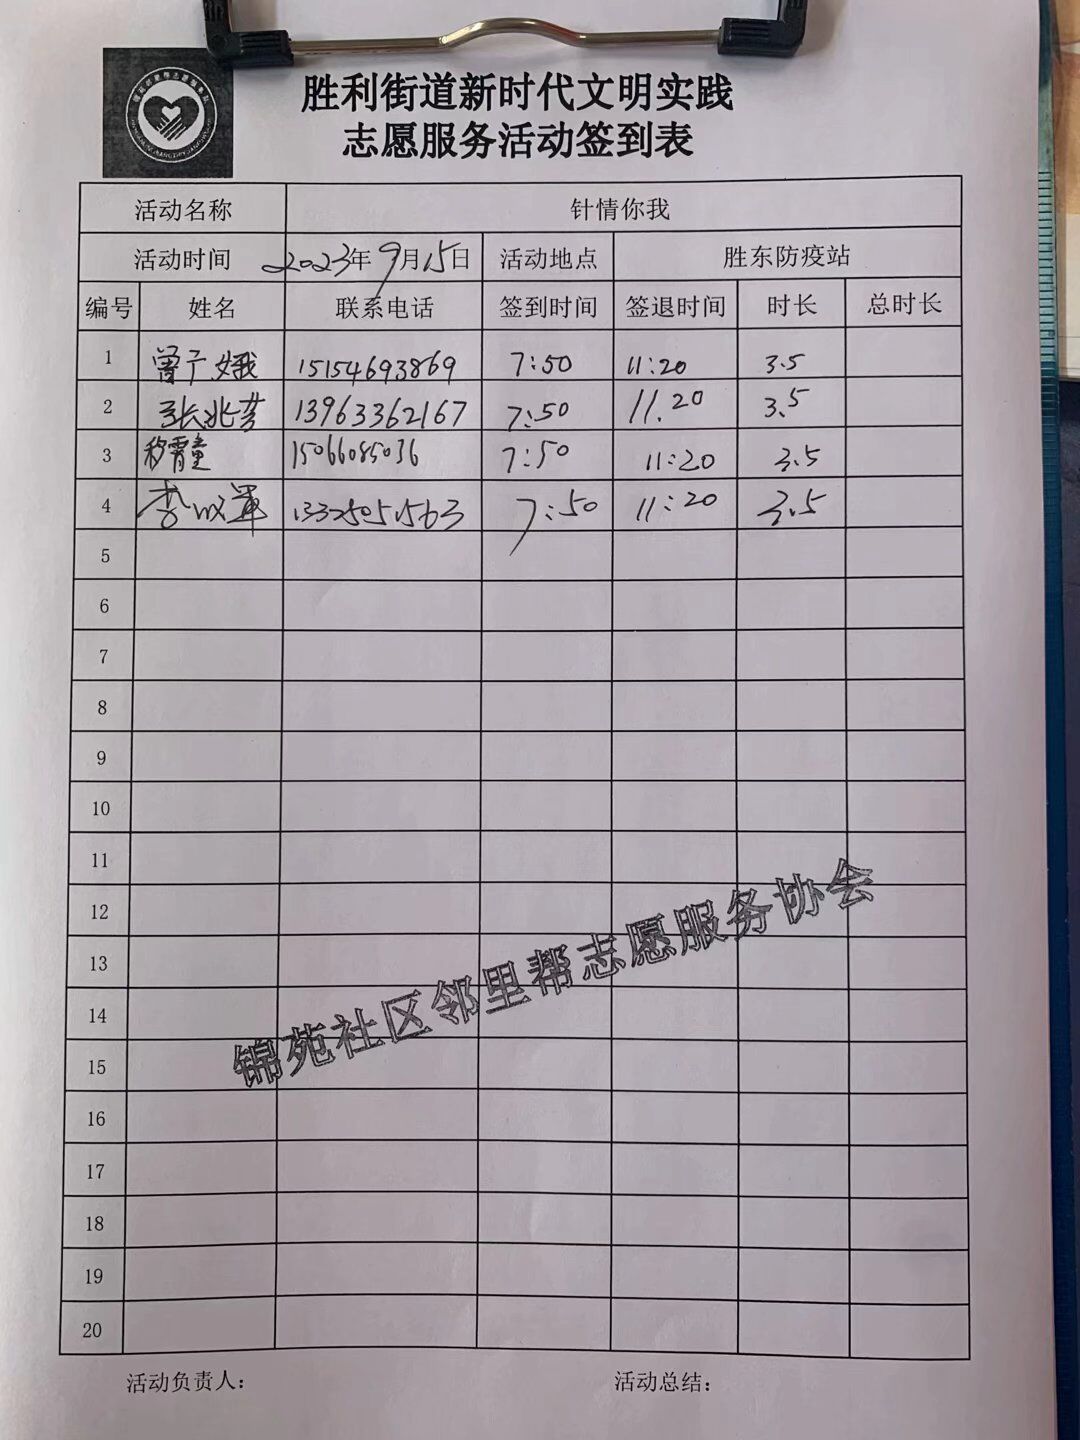 胜利街道新时代文明实践
志愿服务活动签到表
活动名称 针情你我
活动时间 2023年9月15日 活动地点 胜东防疫站
编号 姓名 联系电话 签到时间 签退时间 时长 总时长
1 曾广娥 15154693869 7:50 11:20 3.5
2 张兆芳 13963362167 7:50 11.20 3.5
3 穆霄童 15066085036 7:50 11:20 3.5
4 李 13325051563 7:50 11:20 3.5
5
6
7
8
9
10
11
12
13
14
15
16
17
18
19
20
锦苑社区邻里帮志愿服务协会
活动负责人： 活动总结：